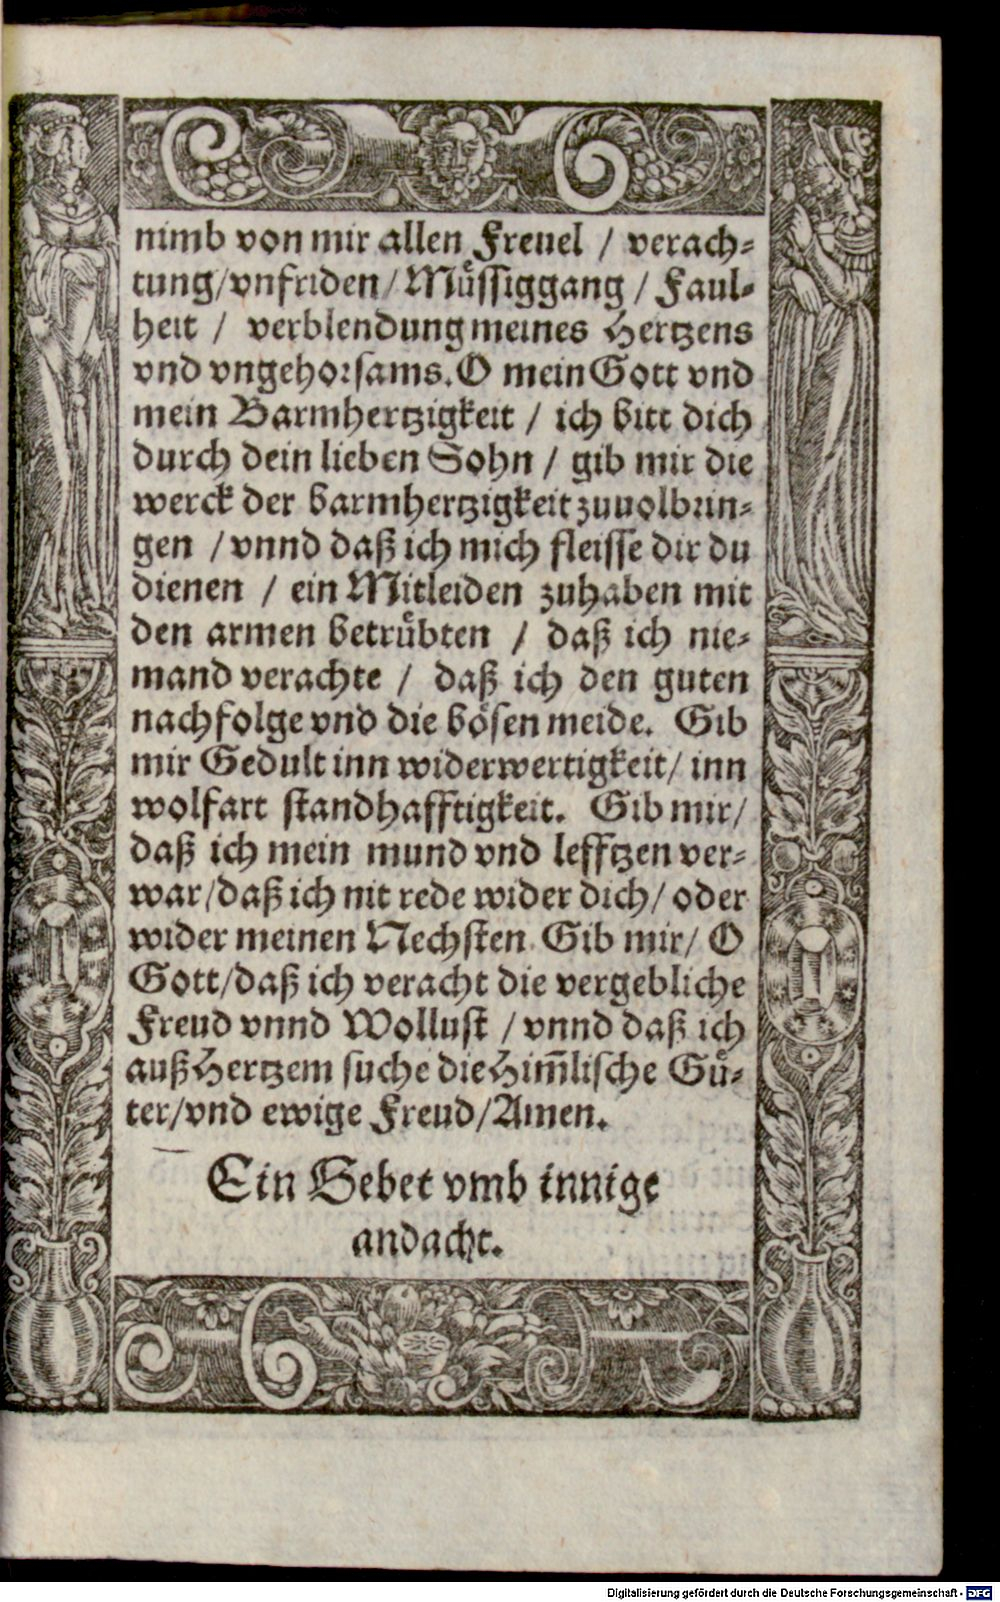 nimb von mir allen Freuel / verach⸗
tung/vnfriden/Müssiggang / Faul⸗
heit / verblendung meines Hertzens
vnd vngehorsams. O mein Gott vnd
mein Barmhertzigkeit / ich bitt dich
durch dein lieben Sohn / gib mir die
werck der barmhertzigkeit zuuolbrin⸗
gen / vnnd daß ich mich fleisse dir du
dienen / ein Mitleiden zuhaben mit
den armen betrübten / daß ich nie⸗
mand verachte / daß ich den guten
nachfolge vnd die bösen meide. Gib
mir Gedult inn widerwertigkeit/ inn
wolfart standhafftigkeit. Gib mir/
daß ich mein mund vnd lefftzen ver⸗
war/daß ich nit rede wider dich/ oder
wider meinen Nechsten. Gib mir/ O
Gott/daß ich veracht die vergebliche
Freud vnnd Wollust / vnnd daß ich
auß Hertzem suche die Him̃lische Gü⸗
ter/vnd ewige Freud/Amen.
Ein Gebet vmb innige
andacht.
Digitalisierung gefördert durch die Deutsche Forschungsgemeinschaft - DFG